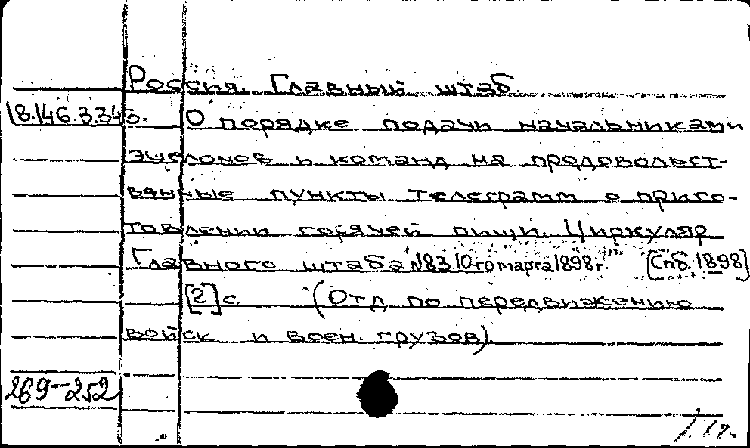 Россия. Главный штаб.
18.146.3.345. О порядке подачи начальниками
эшелонов и команд на продовольст-
венные пункты телеграмм о приго-
товлении горячей пищи. Циркуляр
Главного штаба №83 10го марта 1898 г. [Спб. 1898]
[2] с. (Отд. по передвижению
войск и воен. грузов)
269-252